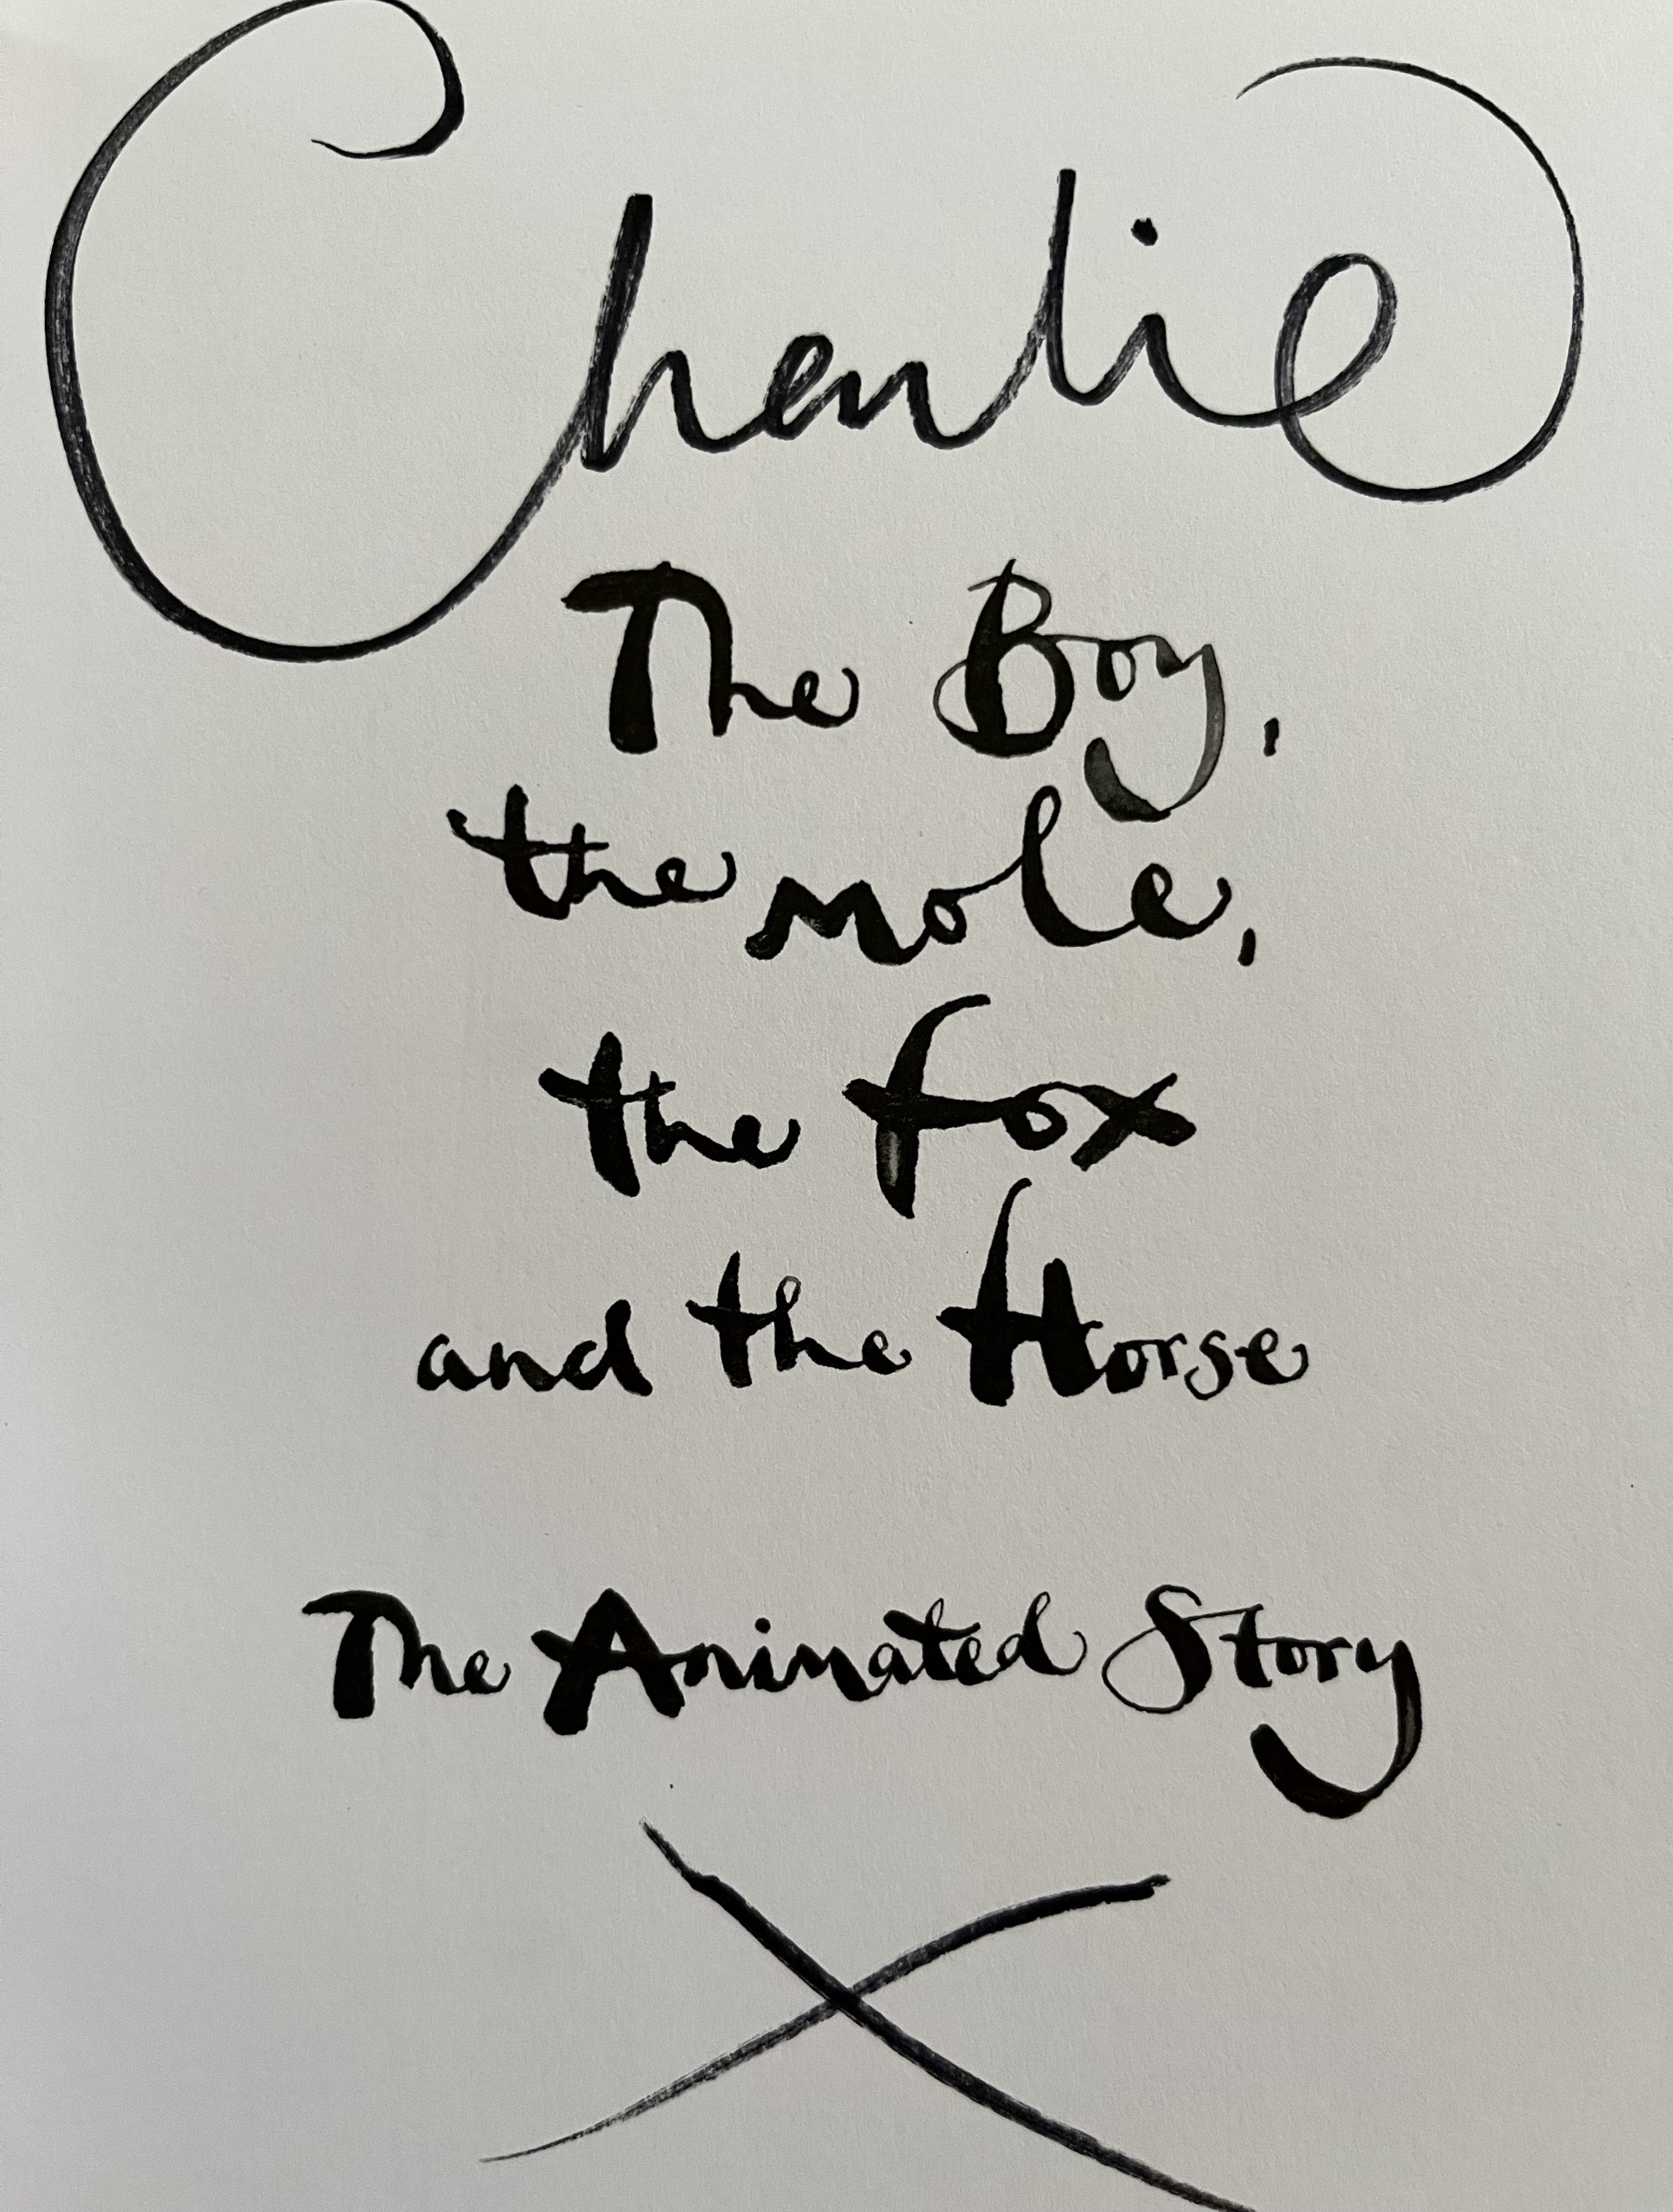 Charlie
The Boy,
the mole,
the fox
and the Horse
The Animated Story
X